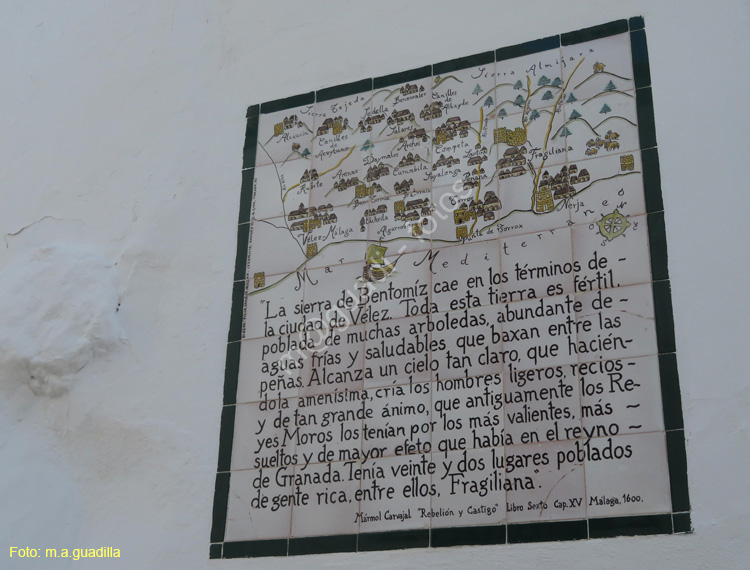 Sierra Tejeda
Sierra Almijara
Alcaucín
Canilles de Aceytuno
Sedella
Benescaler
Canilles de Albayde
Salares
Competa
Fragiliana
Daymales
Rubite
Arenas
Curumbila
Sayalonga
Torrox
Nerja
Vélez-Málaga
Algarrobo
Punta de Torrox
Mar Mediterraneo
"La sierra de Bentomíz cae en los términos de -
la ciudad de Vélez. Toda esta tierra es fértil,
poblada de muchas arboledas, abundante de -
aguas frías y saludables que baxan entre las
peñas. Alcanza un cielo tan claro, que hacién-
dola amenísima, cría los hombres ligeros, recios -
y de tan grande ánimo, que antiguamente los Re-
yes Moros los tenían por los más valientes, más ~
sueltos y de mayor efeto que había en el reyno ~
de Granada. Tenía veinte y dos lugares poblados
de gente rica, entre ellos, Fragiliana".
Mármol Carvajal "Rebelión y Castigo" Libro Sexto Cap. XV Málaga, 1600.
Foto: m.a.guadilla